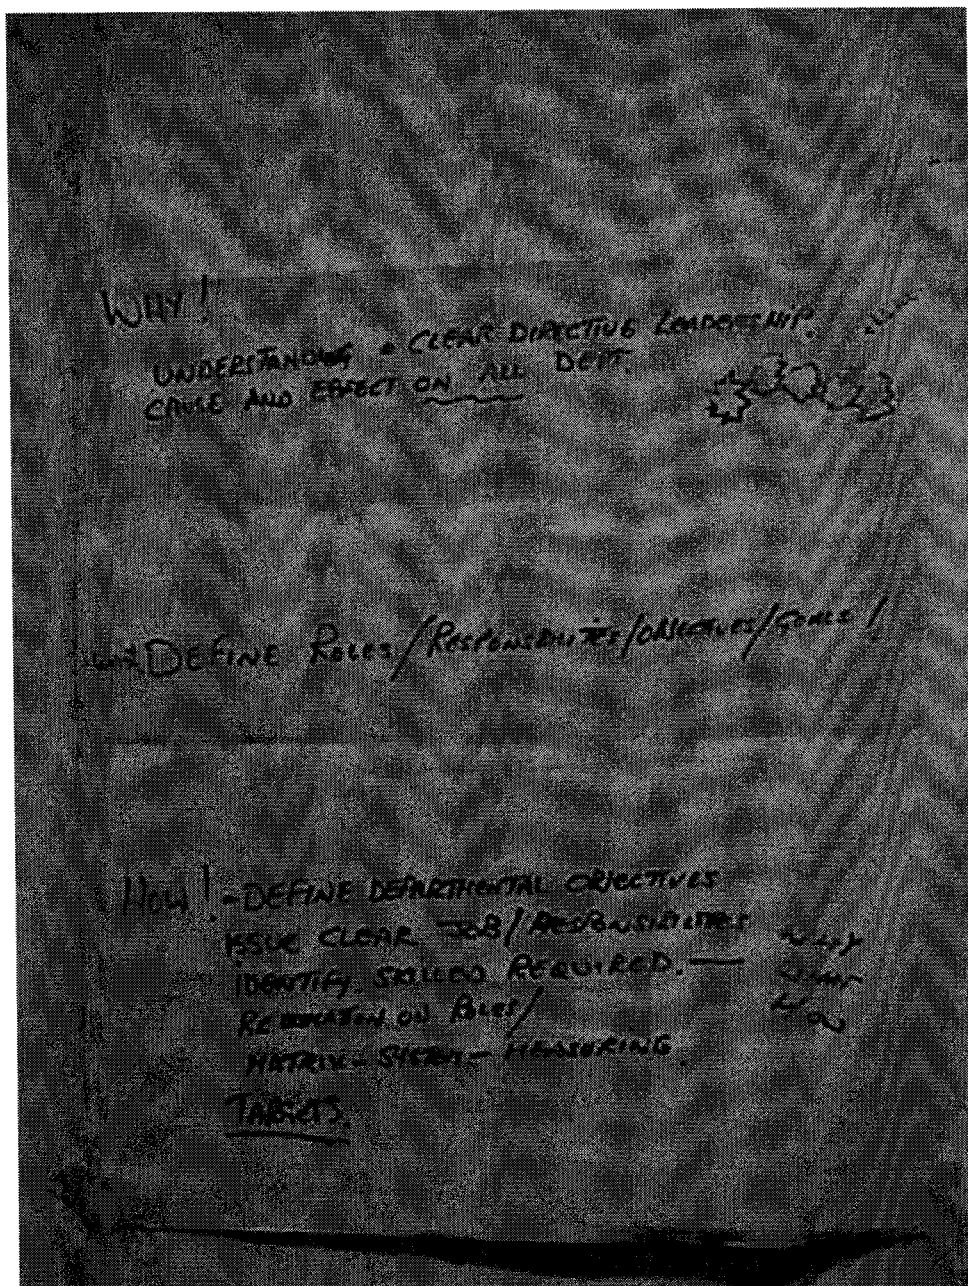 WHY!
UNDERSTANDING + CLEAR DIRECTIVE LEADERSHIP.
CAUSE AND EFFECT ON ALL DEPT.
DEFINE ROLES/RESPONSIBILITIES/OBJECTIVES/GOALS/
HOW! - DEFINE DEPARTMENTAL OBJECTIVES
ISSUE CLEAR JOB/RESPONSIBILITIES
IDENTIFY SKILLED REQUIRED. —
ON ROLES/
MATRIX - - MEASURING
TARGETS.
WHY
WHAT